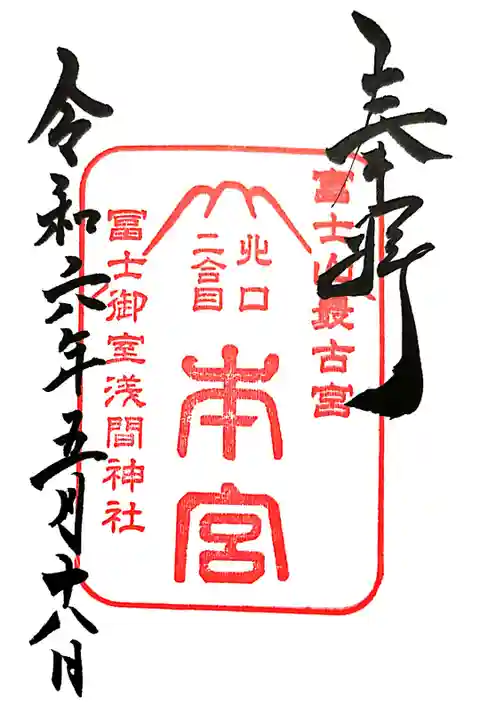 奉拝
冨士山最古宮
北口
二合目
本宮
冨士御室浅間神社
令和六年五月十八日